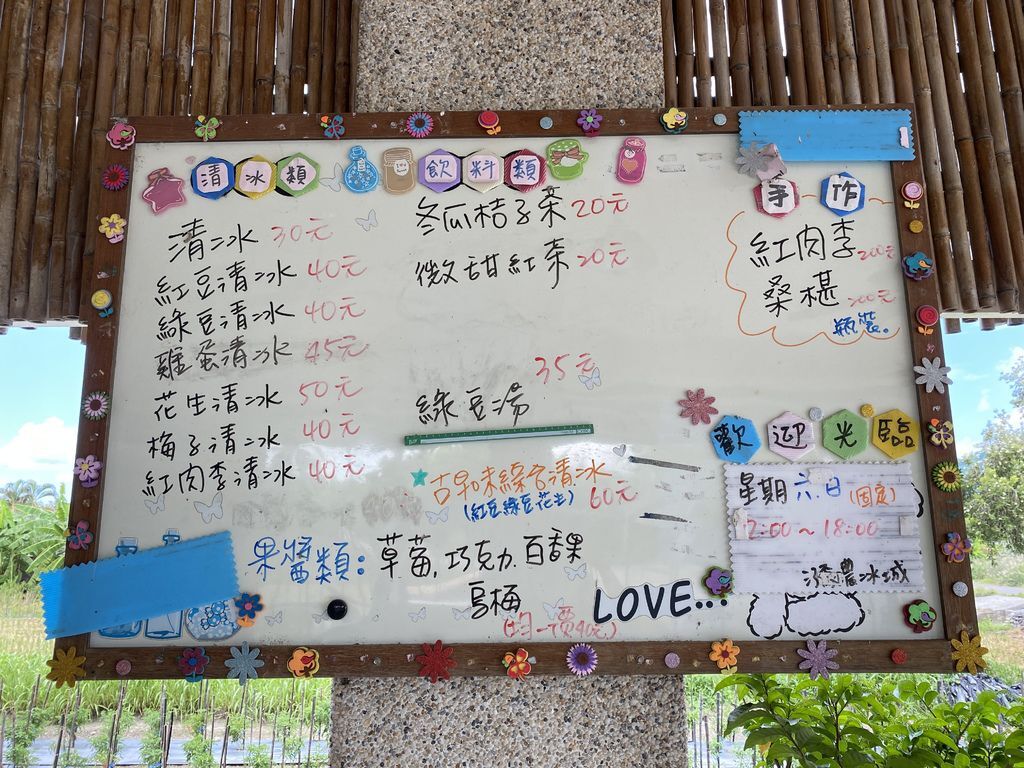 清冰類
清冰 30元
紅豆清冰 40元
綠豆清冰 40元
雞蛋清冰 45元
花生清冰 50元
梅子清冰 40元
紅肉李清冰 40元
飲料類
冬瓜桔子茶 20元
微甜紅茶 20元
35元
綠豆湯
古早味綜合清冰
(紅豆綠豆花生) 60元
果醬類：草莓, 巧克力, 百香果
烏梅
(均一價40元)
LOVE...
手作
紅肉李 200元
桑椹 200元
瓶裝。
歡迎光臨
星期六.日(固定)
12:00～18:00
農冰城